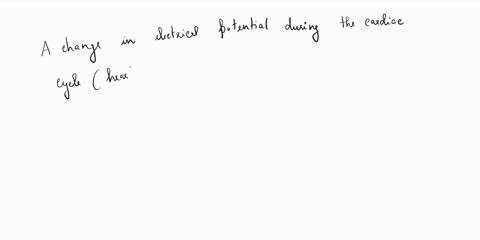 A change in electrical potential during the cardiac
cycle (hear